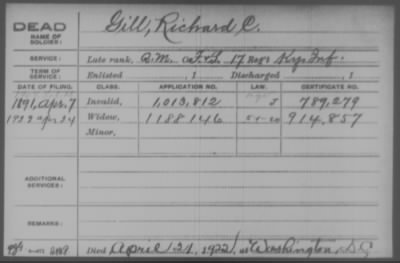 DEAD
NAME OF SOLDIER:
Gill, Richard C.
SERVICE:
Late rank, Q.M. Co. F&S, 17 Reg't Ky. Inf.
TERM OF SERVICE:
Enlisted , 1 Discharged , 1
DATE OF FILING. CLASS. APPLICATION NO. LAW. CERTIFICATE NO.
1891, Apr. 7 Invalid, 1,013,812 J 789,279
Apr 24 Widow, 1188146 914,857
Minor,
ADDITIONAL SERVICES:
REMARKS:
Died April 21, 1922, at Washington, D.C.